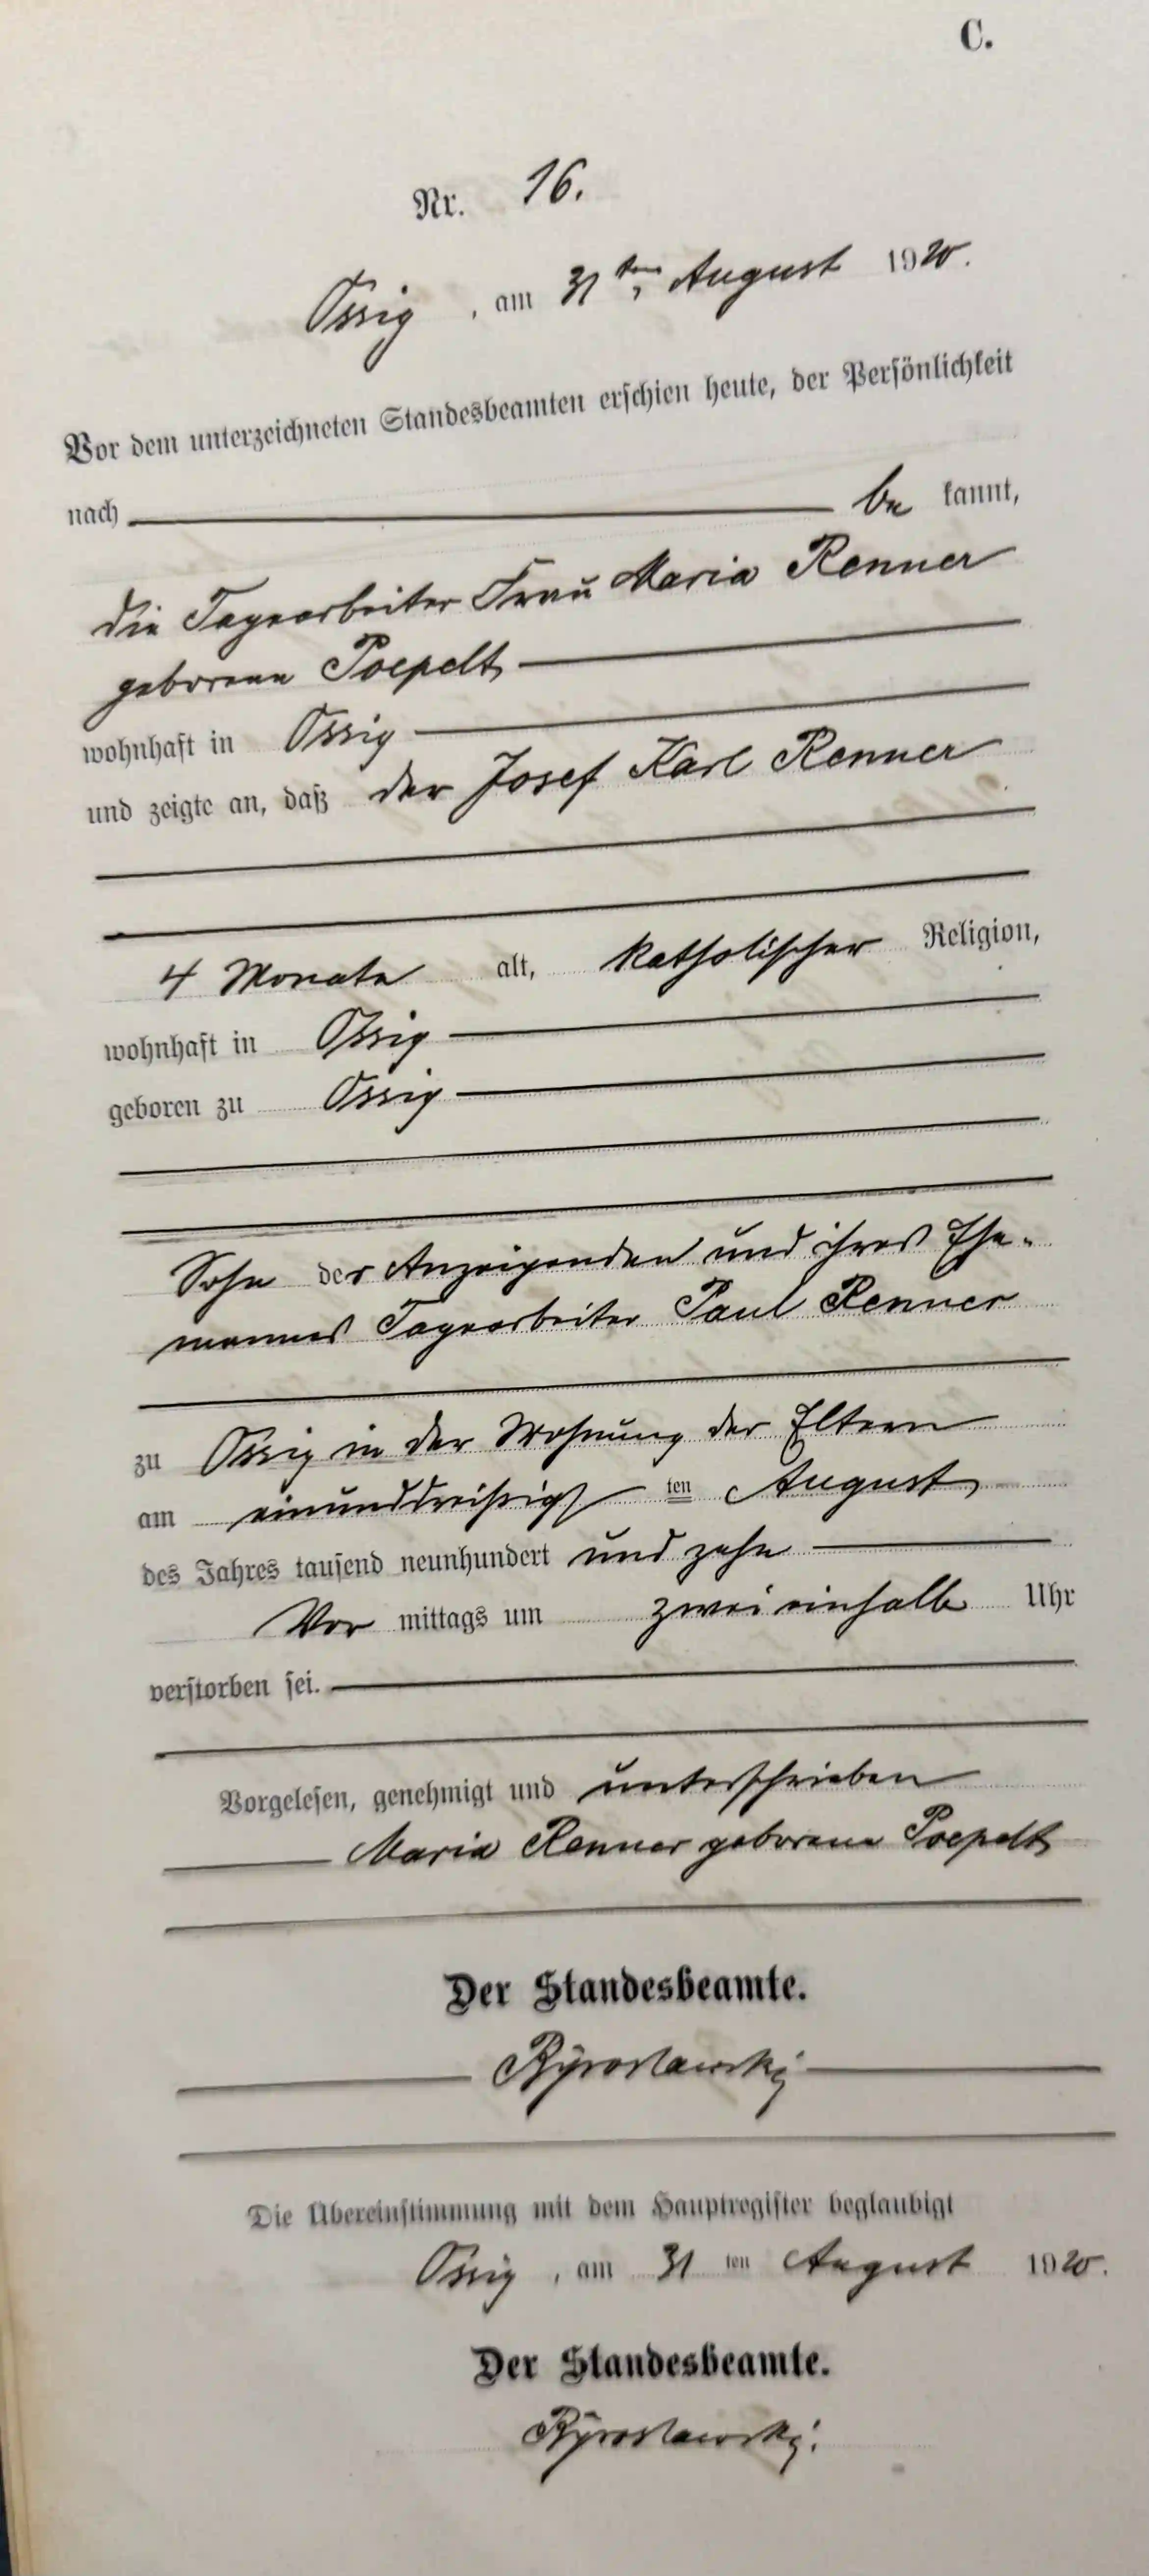 C.
Nr. 16.
Ossig, am 31ten August 1920.
Vor dem unterzeichneten Standesbeamten erschien heute, der Persönlichkeit
nach be kannt,
die Tagearbeiter Frau Maria Renner
geborene Poepelt
wohnhaft in Ossig
und zeigte an, daß der Josef Karl Renner
4 Monate alt, katholischer Religion,
wohnhaft in Ossig
geboren zu Ossig
Sohn der Anzeigenden und ihres Ehe-
mannes Tagearbeiter Paul Renner
zu Ossig in der Wohnung der Eltern
am einunddreißigs ten August
des Jahres tausend neunhundert und zehn
Vor mittags um zwei einhalb Uhr
verstorben sei.
Vorgelesen, genehmigt und unterschrieben
Maria Renner geborene Poepelt
Der Standesbeamte.
Die Übereinstimmung mit dem Hauptregister beglaubigt
Ossig, am 31 ten August 1920.
Der Standesbeamte.